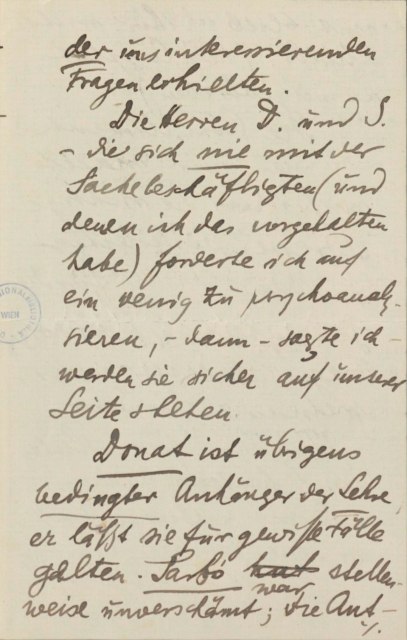 der uns interessierenden
Fragen erhielten.
Die Herren D. und S.
- die sich nie mit der
Sache beschäftigten (und
denen ich das vorgehalten
habe) forderte ich auf
ein wenig zu psychoanaly-
sieren, - dann - sagte ich -
werden sie sicher auf unserer
Seite stehen.
Donat ist übrigens
bedingter Anhänger der Lehre,
er läßt sie für gewiße Fälle
gelten. Sarbó hat stellen-
war
weise unverschämt; die Ant-
./.
WIEN